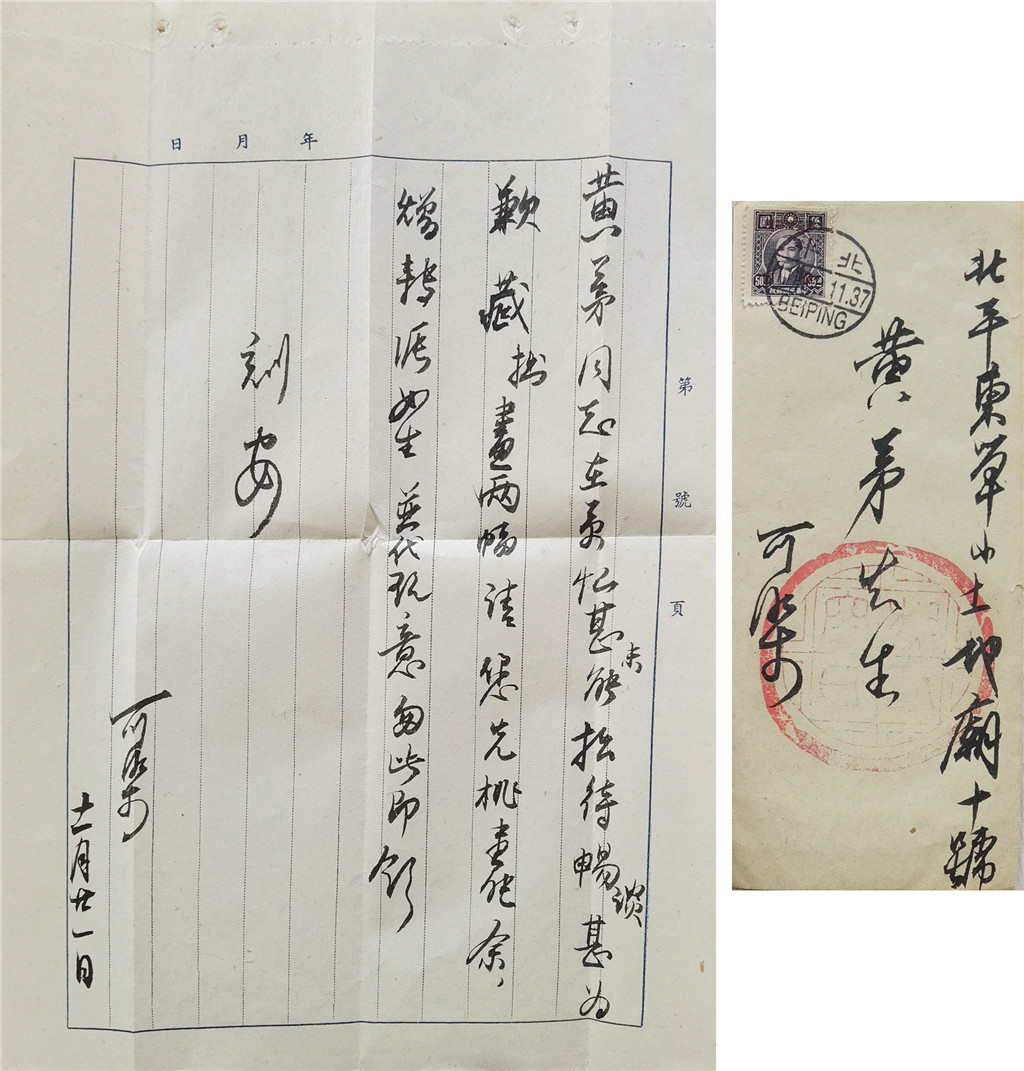 年 月 日
第 號 頁
黄茅同志在京忙甚未能招待暢談甚為
歉 藏拙畫兩幅請您先挑壹張余
贈轉張如生 並代致意匆此即頌
刻安
可染
十一月廿一日
北平東單小土地廟十號
黄茅先生
可染
北
11.37
BEIPING
50